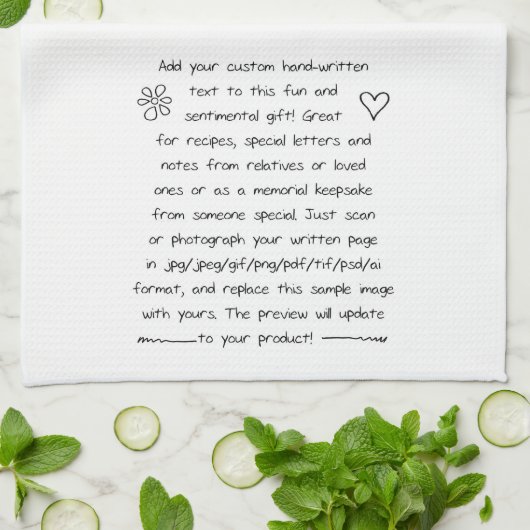 Add your custom hand-written
text to this fun and
sentimental gift! Great
for recipes, special letters and
notes from relatives or loved
ones or as a memorial keepsake
from someone special. Just scan
or photograph your written page
in jpg/jpeg/gif/png/pdf/tif/psd/ai
format, and replace this sample image
with yours. The preview will update
to your product!